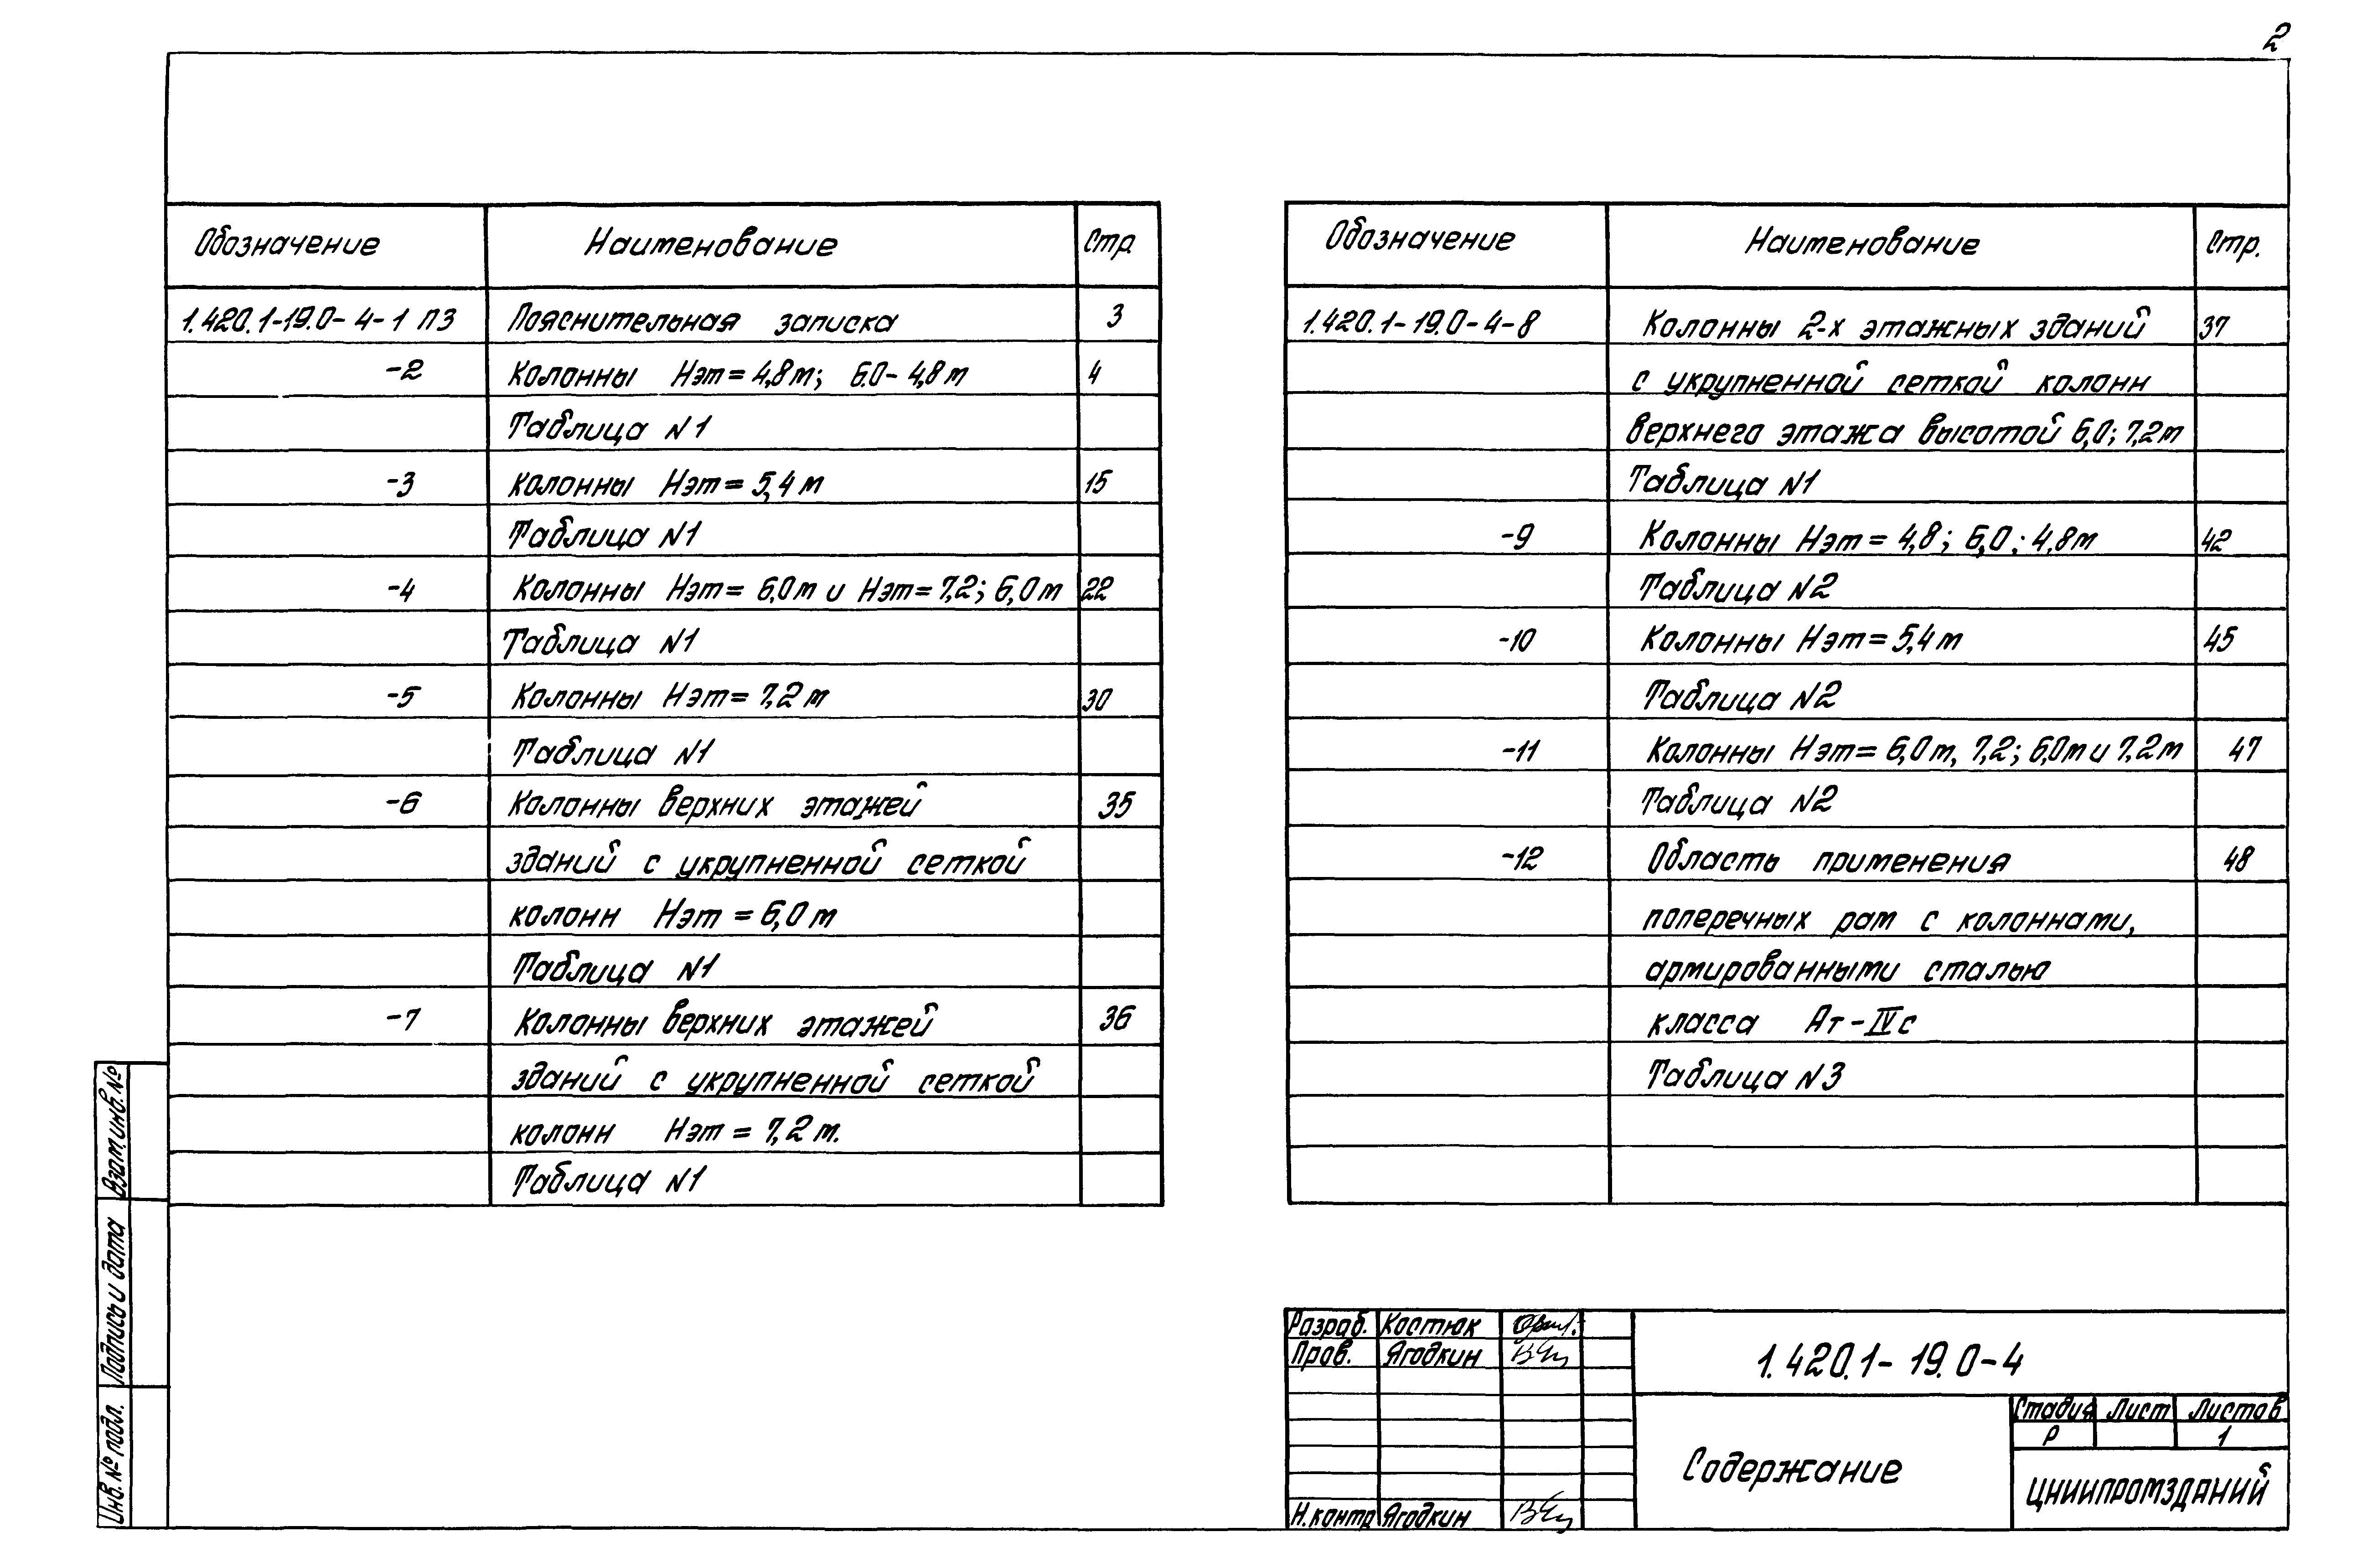 2
Обозначение Наименование Стр.
1.420.1-19.0-4-1 ПЗ Пояснительная записка 3
-2 Колонны Нэт=4,8м; 6.0-4,8м 4
Таблица N1
-3 Колонны Нэт=5,4м 15
Таблица N1
-4 Колонны Нэт=6,0м и Нэт=7,2; 6,0м 22
Таблица N1
-5 Колонны Нэт=7,2м 30
Таблица N1
-6 Колонны верхних этажей 35
зданий с укрупненной сеткой
колонн Нэт=6,0м
Таблица N1
-7 Колонны верхних этажей 36
зданий с укрупненной сеткой
колонн Нэт=7,2м.
Таблица N1
Обозначение Наименование Стр.
1.420.1-19.0-4-8 Колонны 2-х этажных зданий 37
с укрупненной сеткой колонн
верхнего этажа высотой 6,0; 7,2м
Таблица N1
-9 Колонны Нэт=4,8; 6,0; 4,8м 42
Таблица N2
-10 Колонны Нэт=5,4м 45
Таблица N2
-11 Колонны Нэт=6,0м, 7,2; 6,0м и 7,2м 47
Таблица N2
-12 Область применения 48
поперечных рам с колоннами,
армированными сталью
класса Ат-IVс
Таблица N3
Взам.инв.№
Подпись и дата
Инв.№ подл.
Разраб. Костюк
Пров. Ягодкин
Н.контр Ягодкин
1.420.1-19.0-4
Содержание
Стадия Лист Листов
Р 1
ЦНИИПРОМЗДАНИЙ